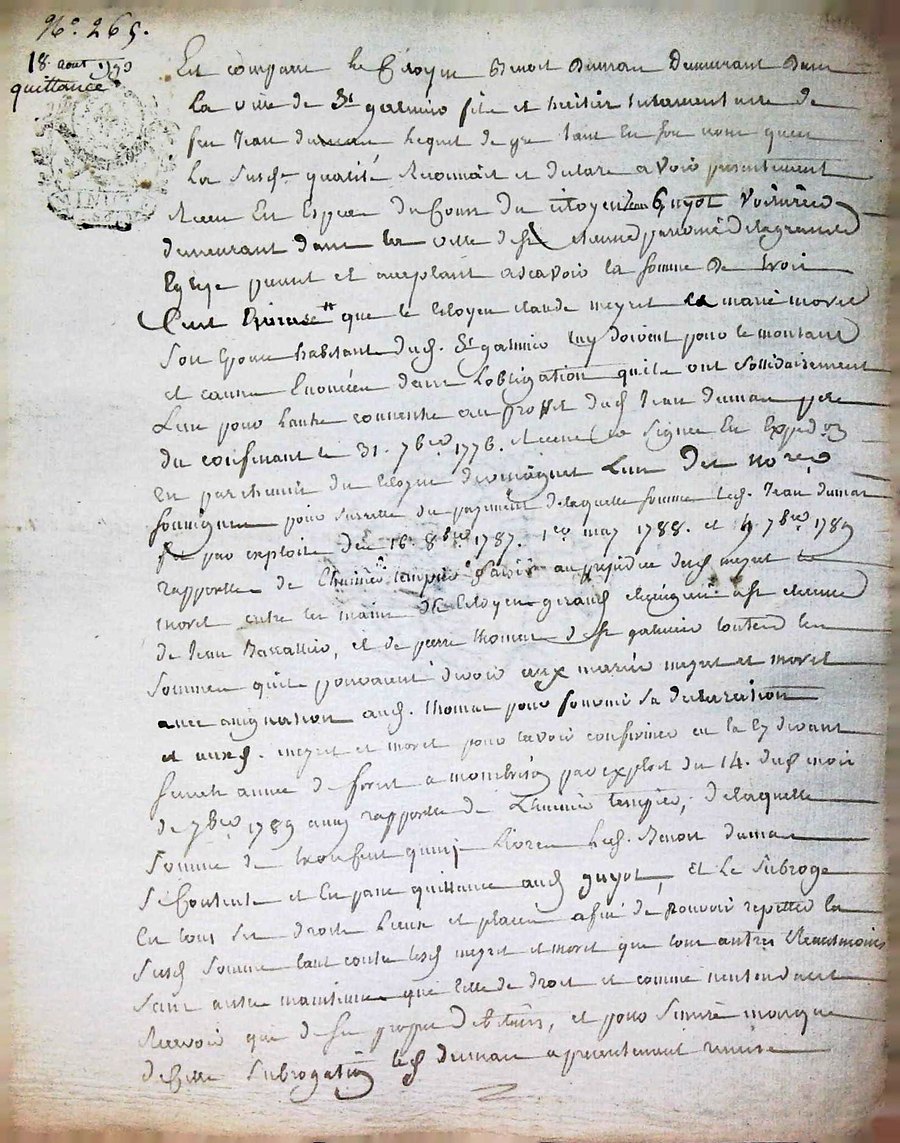 N.° 265.
18. aout 1793
quittance
MINUTE
Est comparu le Citoyen Benoit Dumas Demeurant Dans
La ville de St galmier fils et heritier testamentaire de
feu Jean dumas tant En son nom quen
La Susd. qualité Reconnait et declare avoir presentement
Receu En Especes du Cours du citoyen Jean Guyot Voiturier
demeurant dans la ville de St etienne paroisse de la grande
Eglise present et acceptant ascavoir la somme de trois
Cent quinze tt que le Citoyen claude meyret la marie morel
Son Epouse habitant dud. St galmier luy doivent pour le montant
et causes Enoncées dans Lobligation quils ont Sollidairement
Lun pour Lautre consentie au proffit dud Jean dumas pere
du confinant le 31. 7bre 1776. et Signée En Expedon
En parchemin du Citoyen Lun des nores
Soussignes pour surette du payement de laquelle somme led. Jean dumas
fit par exploits des 16. 8bre 1787. 1er may 1788. et 4 7bre 1789
rapportés de Lhuissier tempier Saisir au prejudice desd meyret et
morel entre les mains du Citoyen girard a St etienne
de Jean et de pierre thomas de St galmier toutes les
Sommes quils pouvaient devoir aux maries meyret et morel
avec assignation aud. thomas pour fournir sa declaration
et auxd. meyret et morel pour la voir confirmer en la cy devant
Senechaussée de forest a montbrison par exploit du 14. dud mois
de 7bre 1789 aussy rapporté de Lhuissier tempier, de laquelle
Somme de trois Cent quinze Livres Led. Benoit dumas
Se Contente et En passe quittance aud guyot, et Le Subroge
En tous ses droits Lieux et places afin de pouvoir repetter la
Susd Somme tant contre lesd meyret et morel que tous autres
Sans autre maintenue que celle de droit et comme nentendant
Recevoir que de ses propres debiteurs, et pour Sincere marque
de Cette Subrogation led dumas a presentement remis